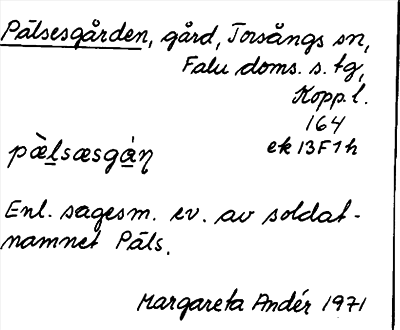 Pälsesgården, gård, Torsångs sn,
Falu doms. s. tg,
Kopp. l.
164
ek 13F1h
pæ̀lsæsgán
Enl. sagesm. ev. av soldat-
namnet Päls.
Margareta Andér 1971